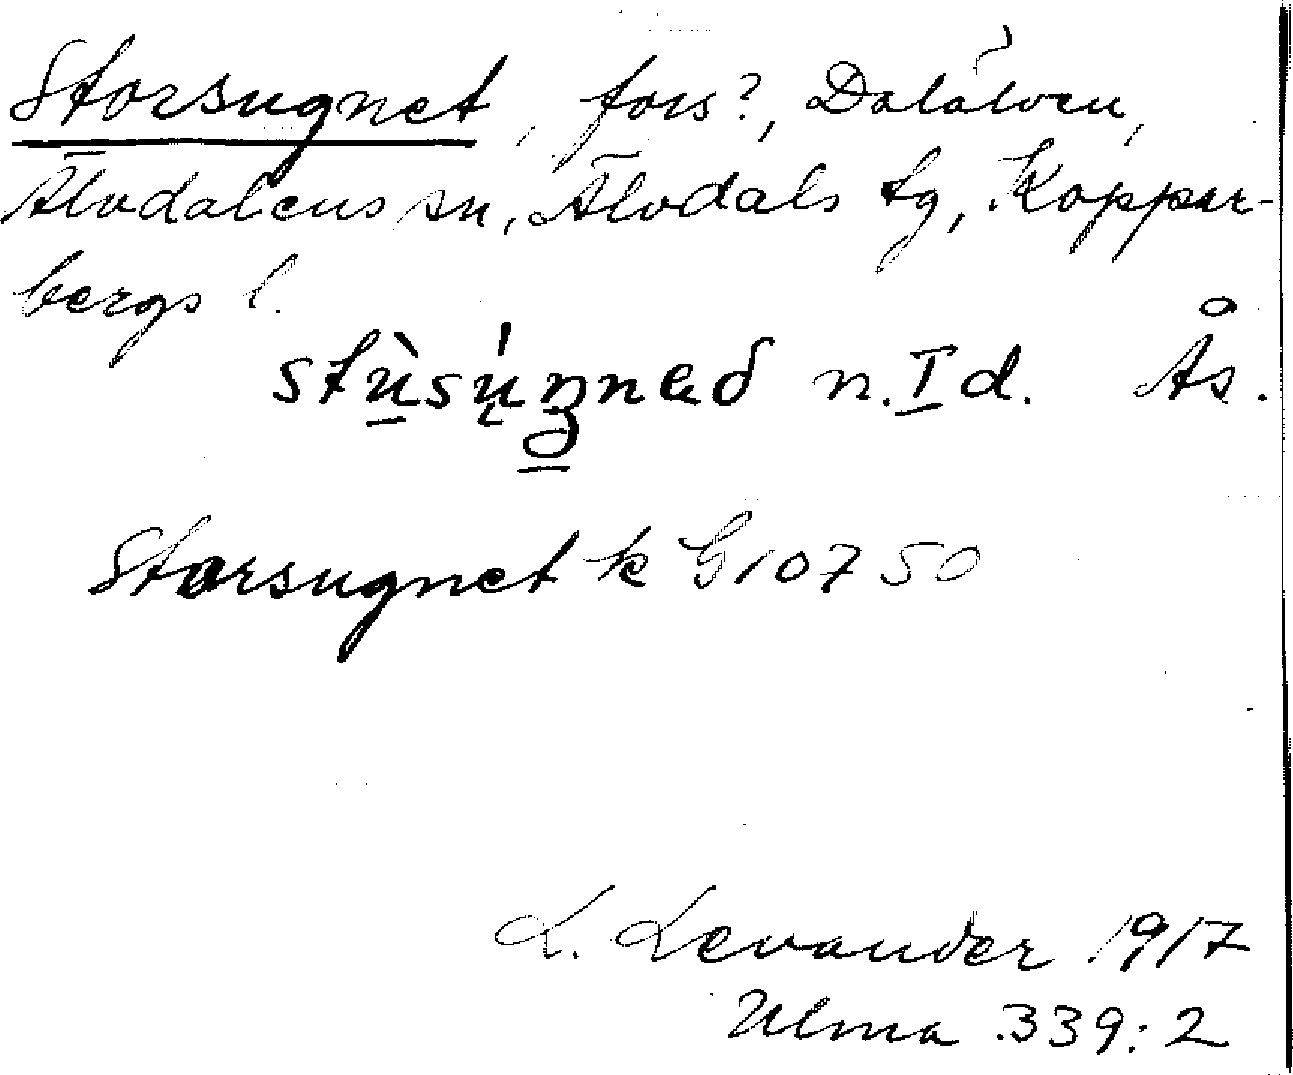 Storsugnet, fors?, Dalälven,
Älvdalens sn, Älvdals tg, Koppar-
bergs l.
n. I d. Ås.
Storsugnet k G10750
L. Levander 1917
Ulma 339:2